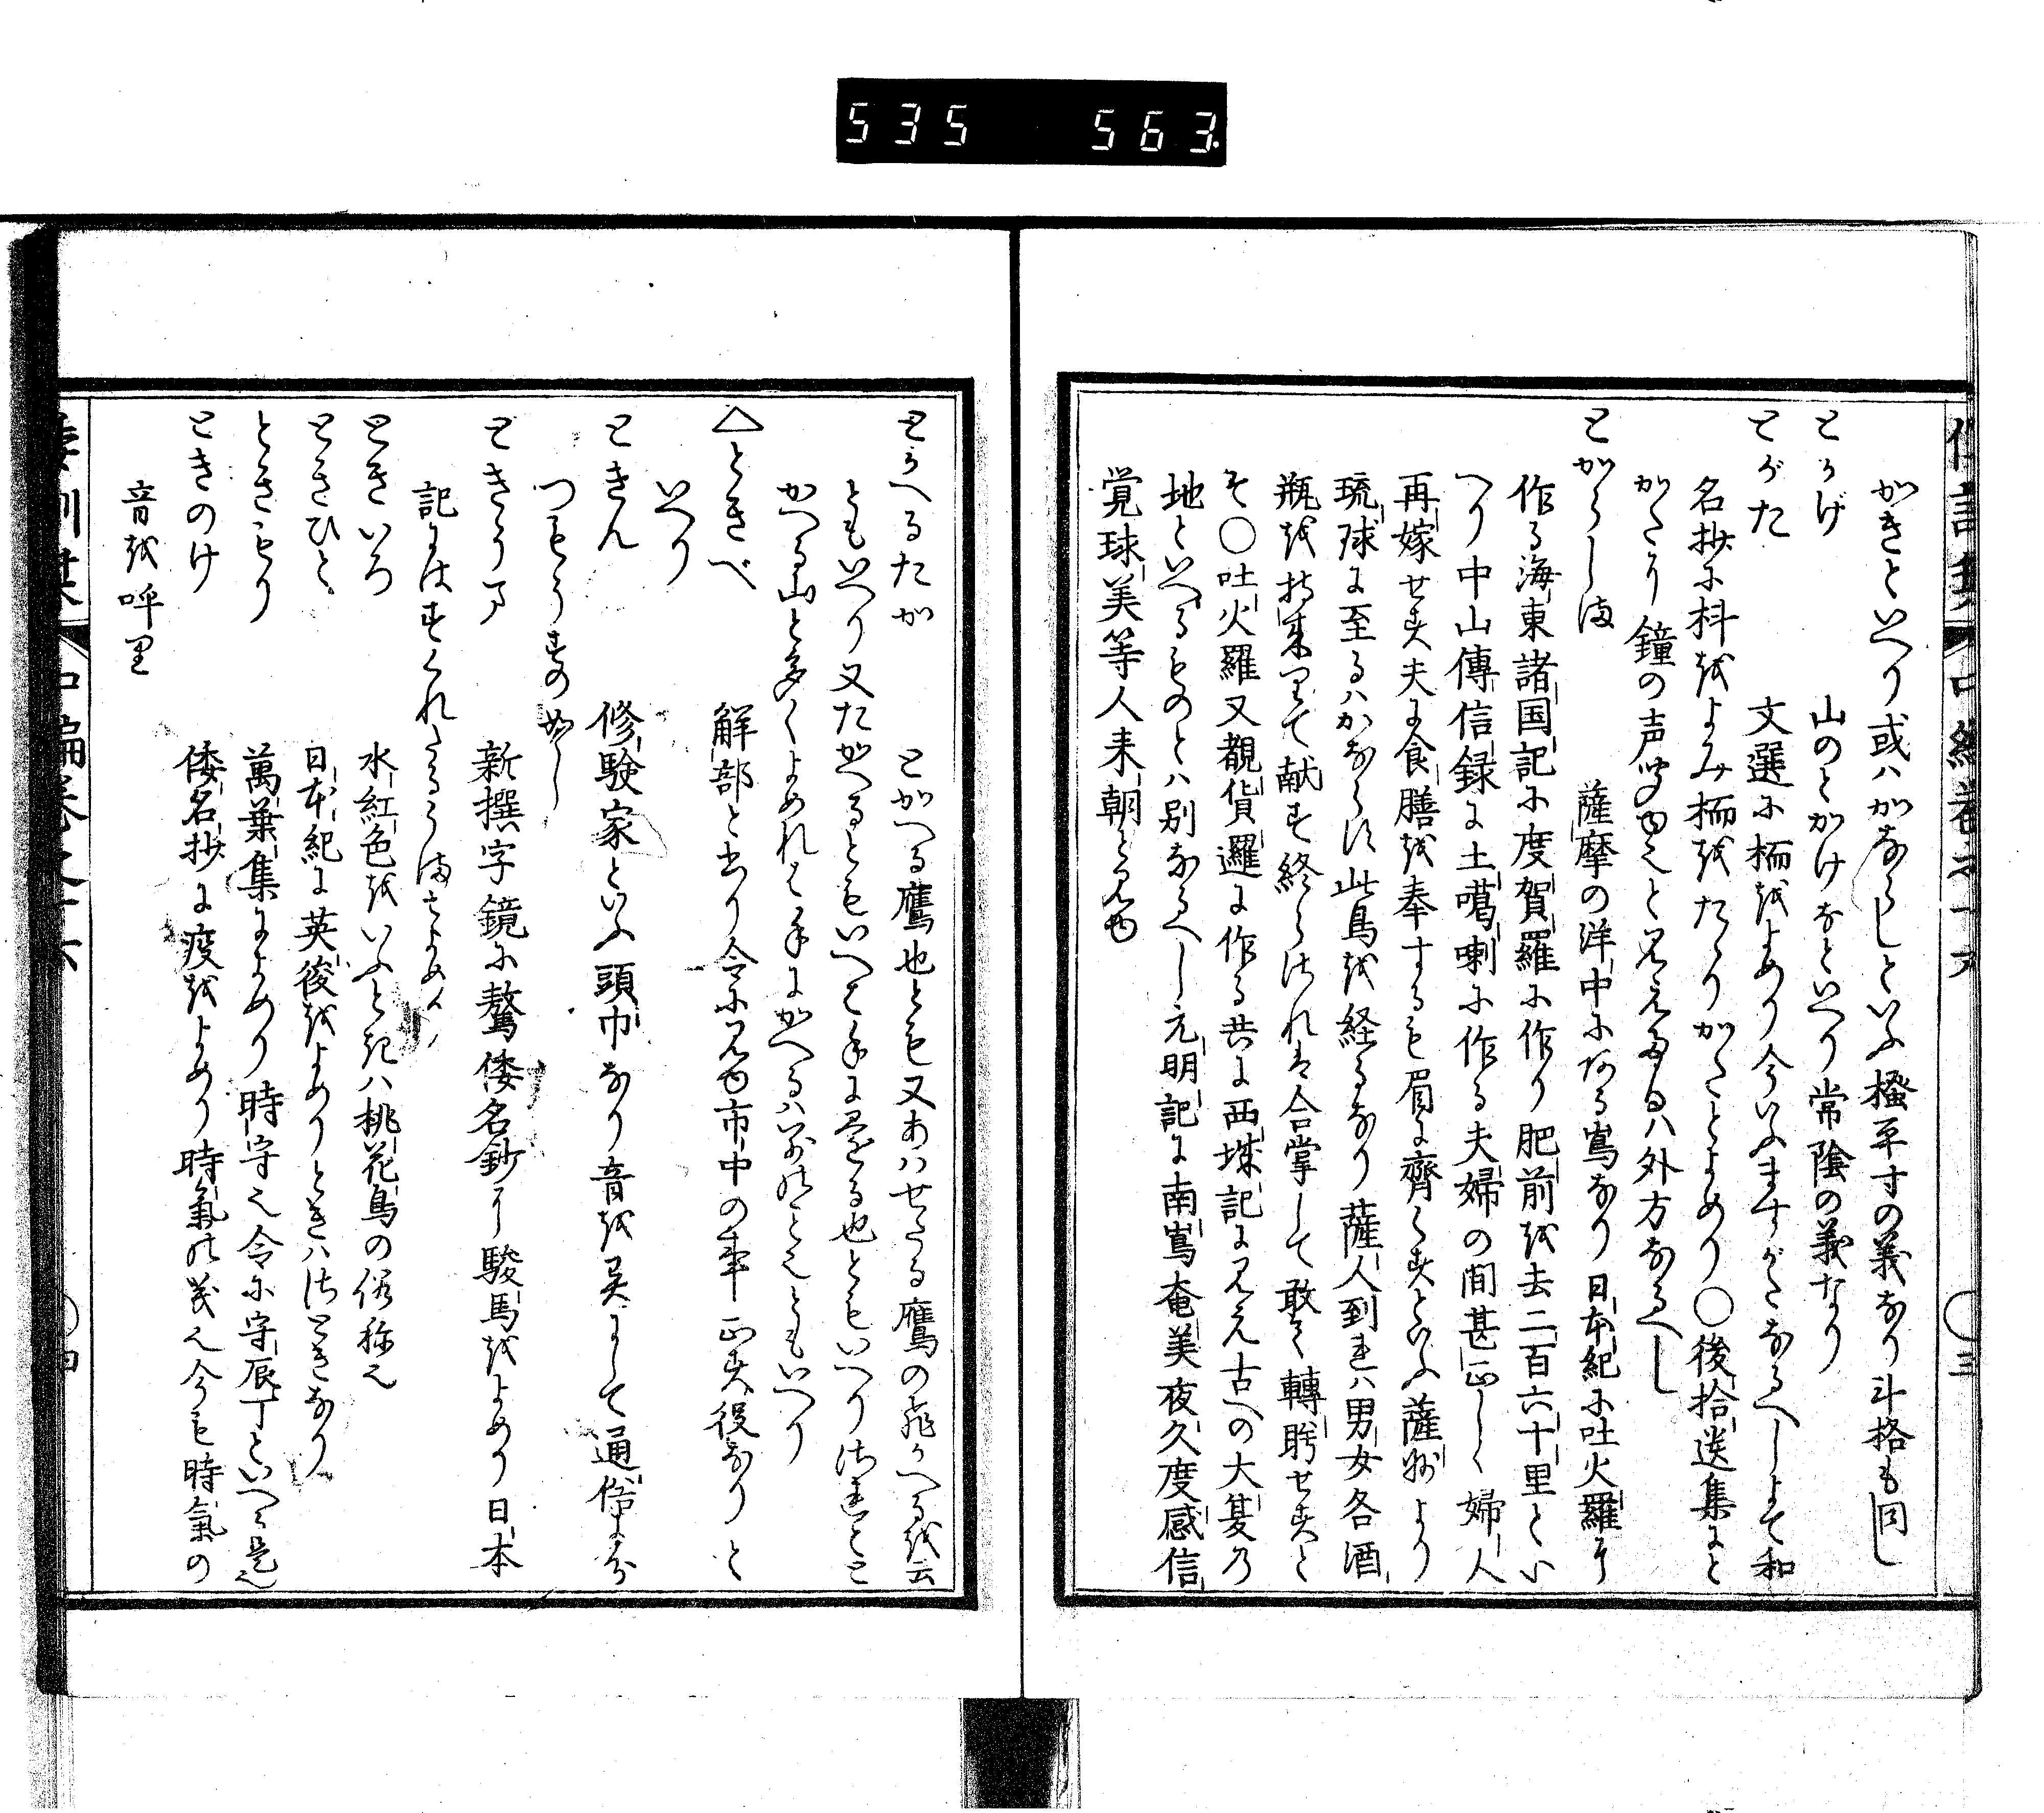 535 563.
がきといへり或ハかならしといふ掻平寸の義なり斗格も同し
とかげ 山のとかけなといへり常陰の義なり
とがた 文選に枡をよめり今いふますがたなるへしよて和
名抄に枓をよみ枡をたゝりかたとよめり〇後拾遺集にと
がたり鐘の声 と見えたるハ外方なるへし
とからしま 薩摩の洋中にある嶌なり日本紀に吐火羅に
作る海東諸国記に度賀羅に作り肥前を去二百六十里とい
へり中山傳信録に土噶喇に作る夫婦の間甚正しく婦人
再嫁せす夫に食膳を奉するも眉に齊くすといふ薩州より
琉球に至るハかならす此島を経るなり薩人到れハ男女各酒
瓶を持来りて献す終らされは合掌して敢て轉眸せすと
そ〇吐火羅又覩貨邏に作る共に西域記に見え古への大夏乃
地といへるものとハ別なるへし元明記に南嶌奄美夜久度感信
覚球美等人来朝と見ゆ
とかへるたか とかへる鷹也とも又あハせたる鷹の飛かへるを云
ともいへり又たかへるともいへと手に還る也ともいへりされとと
かへる山と多くよめれと手にかへるハいかゝことともいへり
△ときべ 解部と書り令に見ゆ市中の事正す役なりと
いへり
ときん 修験家といふ頭巾なり音を呉にして通俗に分
つもうすの如し
ときうま 新撰字鏡に驁倭名鈔に駿馬をよめり日本
記にはすくれたるうまとよめり
ときいろ 水紅色をいふとき ハ桃花鳥の俗称也
ときひと 日本紀に英俊をよめりときハさときなり
ときもり 萬葉集によめり時守也令に守辰丁といへる是也
ときのけ 倭名抄に疫をよめり時氣の義也今も時氣の
音を呼り